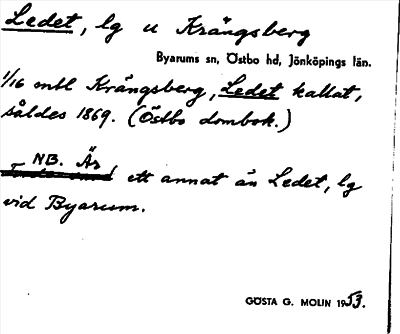 Ledet, lg u Krängsberg
Byarums sn, Östbo hd, Jönköpings län.
1/16 mtl Krängsberg, Ledet kallat,
såldes 1869. (Östbo dombok.)
NB. Är
ett annat än Ledet, lg
vid Byarum.
GÖSTA G. MOLIN 1953.